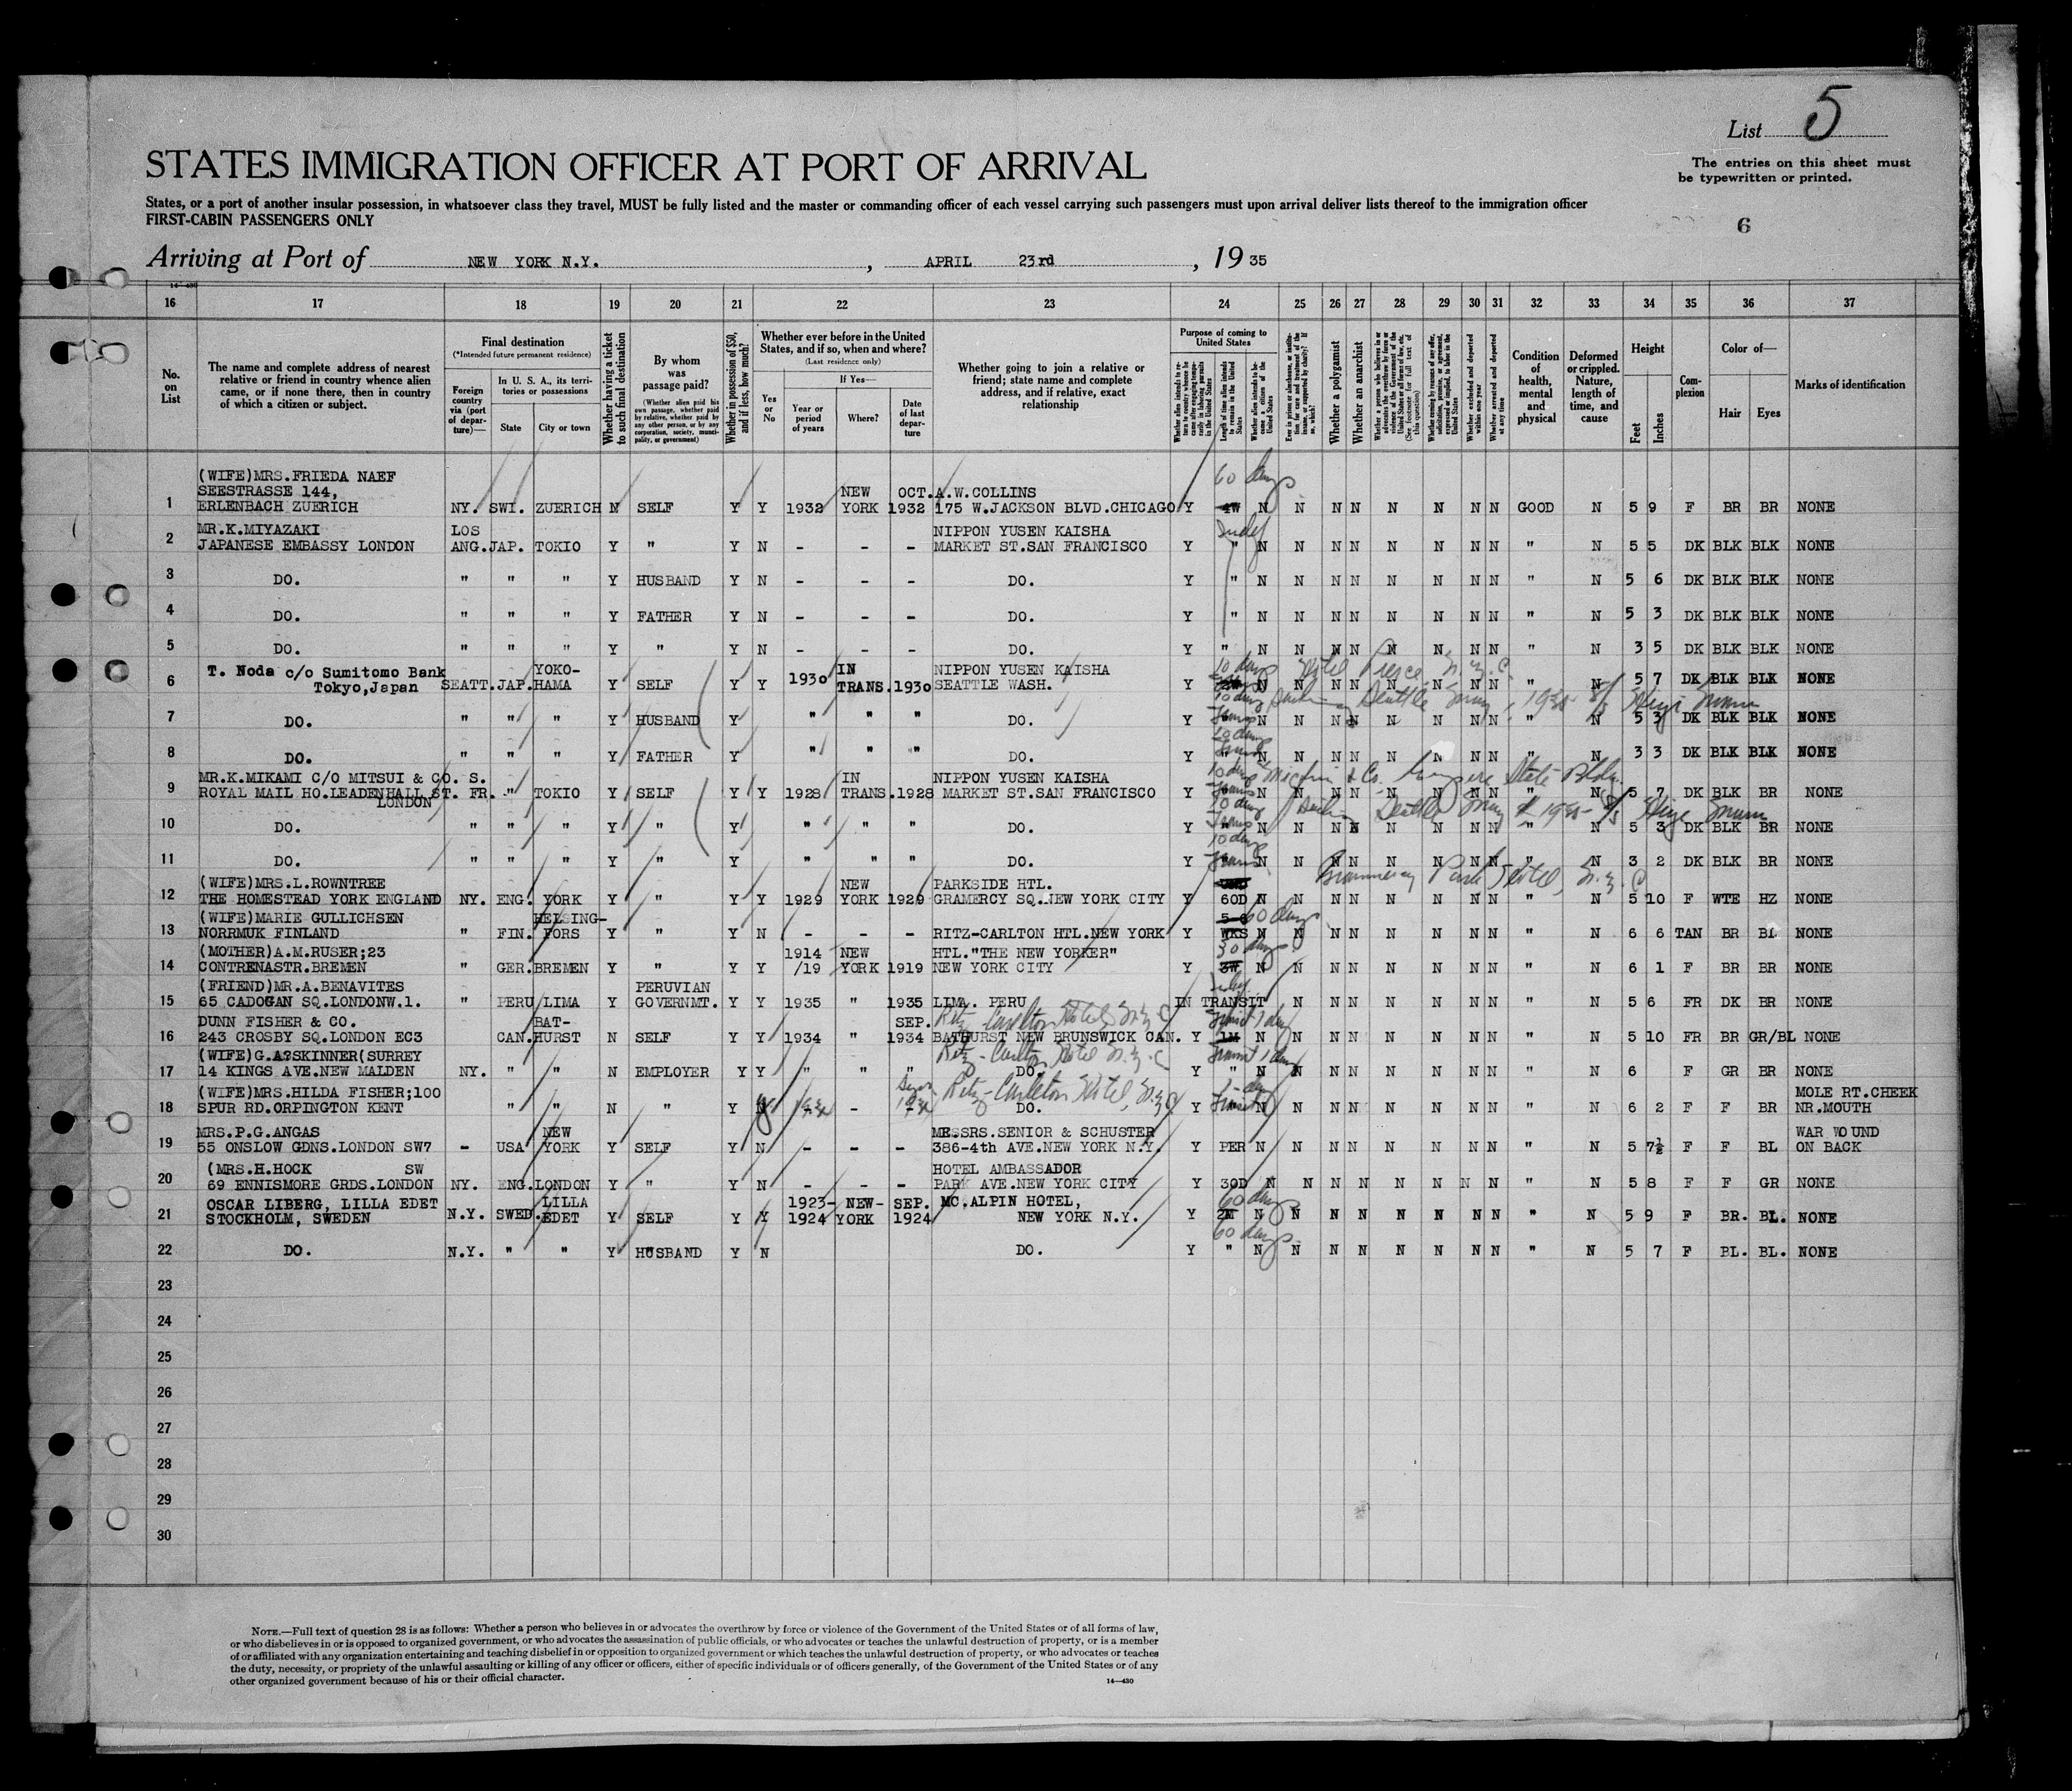 List 5
STATES IMMIGRATION OFFICER AT PORT OF ARRIVAL
The entries on this sheet must
be typewritten or printed.
States, or a port of another insular possession, in whatsoever class they travel, MUST be fully listed and the master or commanding officer of each vessel carrying such passengers must upon arrival deliver lists thereof to the immigration officer
FIRST-CABIN PASSENGERS ONLY
6
Arriving at Port of NEW YORK N.Y. , APRIL 23rd , 19 35
14—430
16 17 18 19 20 21 22 23 24 25 26 27 28 29 30 31 32 33 34 35 36 37
No. on List
The name and complete address of nearest relative or friend in country whence alien came, or if none there, then in country of which a citizen or subject.
Final destination
(*Intended future permanent residence)
Foreign country via (port of departure)—
In U. S. A., its territories or possessions
State
City or town
Whether having a ticket to such final destination
By whom was passage paid?
(Whether alien paid his own passage, whether paid by relative, whether paid by any other person, or by any corporation, society, municipality, or government)
Whether in possession of $50, and if less, how much?
Whether ever before in the United States, and if so, when and where?
(Last residence only)
Yes or No
If Yes—
Year or period of years
Where?
Date of last departure
Whether going to join a relative or friend; state name and complete address, and if relative, exact relationship
Purpose of coming to United States
Length of time alien intends to remain in the United States
Whether a polygamist
Whether an anarchist
Whether excluded and deported within one year
Whether arrested and deported at any time
Condition of health, mental and physical
Deformed or crippled. Nature, length of time, and cause
Height
Feet
Inches
Complexion
Color of—
Hair
Eyes
Marks of identification
60 days
(WIFE)MRS.FRIEDA NAEF
SEESTRASSE 144, NEW OCT. A.W.COLLINS
1 ERLENBACH ZUERICH NY. SWI. ZUERICH N SELF Y Y 1932 YORK 1932 175 W.JACKSON BLVD.CHICAGO Y 4W N N N N N N N N GOOD N 5 9 F BR BR NONE
MR.K.MIYAZAKI LOS NIPPON YUSEN KAISHA Indef
2 JAPANESE EMBASSY LONDON ANG. JAP. TOKIO Y " Y N - - - MARKET ST.SAN FRANCISCO Y " N N N N N N N N " N 5 5 DK BLK BLK NONE
3 DO. " " " Y HUSBAND Y N - - - DO. Y " N N N N N N N N " N 5 6 DK BLK BLK NONE
4 DO. " " " Y FATHER Y N - - - DO. Y " N N N N N N N N " N 5 3 DK BLK BLK NONE
5 DO. " " " Y " Y N - - - DO. Y " N N N N N N N N " N 3 5 DK BLK BLK NONE
T. Noda c/o Sumitomo Bank YOKO- IN NIPPON YUSEN KAISHA 10 days Hotel Pierre, N.Y.C.
6 Tokyo,Japan SEATT. JAP. HAMA Y SELF Y Y 1930 TRANS. 1930 SEATTLE WASH. Y N N N N N N N N N 5 7 DK BLK BLK NONE
10 days Sailing Seattle 1935 S/S
7 DO. " " " Y HUSBAND Y " " " DO. Y Trans N N N N N N N N " N 5 3 DK BLK BLK NONE
10 days
8 DO. " " " Y FATHER Y " " " DO. Y Trans N N N N N N N N " N 3 3 DK BLK BLK NONE
MR.K.MIKAMI C/O MITSUI & CO. S. IN NIPPON YUSEN KAISHA 10 days Mitsui & Co. Empire State Bldg.
9 ROYAL MAIL HO.LEADENHALL ST. FR. " TOKIO Y SELF Y Y 1928 TRANS. 1928 MARKET ST.SAN FRANCISCO Y Trans N N N N N N N N " N 5 7 DK BLK BR NONE
LONDON 10 days Sailing Seattle 1935 S/S
10 DO. " " " Y " Y " " " DO. Y Trans N N N N N N N N " N 5 3 DK BLK BR NONE
10 days
11 DO. " " " Y " Y " " " DO. Y Trans N N N N N N N N " N 3 2 DK BLK BR NONE
(WIFE)MRS.L.ROWNTREE NEW PARKSIDE HTL. Gramercy Park Hotel, N.Y.C
12 THE HOMESTEAD YORK ENGLAND NY. ENG. YORK Y " Y Y 1929 YORK 1929 GRAMERCY SQ.NEW YORK CITY Y 60D N N N N N N N N " N 5 10 F WTE HZ NONE
(WIFE)MARIE GULLICHSEN HELSING- 5-6 60 days
13 NORRMUK FINLAND " FIN. FORS Y " Y N - - - RITZ-CARLTON HTL.NEW YORK Y WKS N N N N N N N N " N 6 6 TAN BR BL NONE
(MOTHER)A.M.RUSER;23 1914 NEW HTL."THE NEW YORKER" 30 days
14 CONTRENASTR.BREMEN " GER. BREMEN Y " Y Y /19 YORK 1919 NEW YORK CITY Y 3W N N N N N N N N " N 6 1 F BR BR NONE
(FRIEND)MR.A.BENAVITES PERUVIAN
15 65 CADOGAN SQ.LONDONW.1. " PERU LIMA Y GOVERNMT. Y Y 1935 " 1935 LIMA. PERU IN TRANSIT N N N N N N N " N 5 6 FR DK BR NONE
DUNN FISHER & CO. BAT- SEP. Ritz-Carlton Hotel, N.Y.C Transit 1 day
16 243 CROSBY SQ.LONDON EC3 CAN. HURST N SELF Y Y 1934 " 1934 BATHURST NEW BRUNSWICK CAN. Y 1M N N N N N N N N " N 5 10 FR BR GR/BL NONE
(WIFE)G.A?SKINNER(SURREY Ritz-Carlton Hotel N.Y.C Transit 1 day
17 14 KINGS AVE.NEW MALDEN NY. " " N EMPLOYER Y Y " " " DO. Y " N N N N N N N N " N 6 F GR BR NONE
(WIFE)MRS.HILDA FISHER;100 Ritz-Carleton Hotel, N.Y.C 1-day MOLE RT.CHEEK
18 SPUR RD.ORPINGTON KENT " " N " Y N - DO. Y Transit N N N N N N N N " N 6 2 F F BR NR.MOUTH
MRS.P.G.ANGAS NEW MESSRS.SENIOR & SCHUSTER WAR WOUND
19 55 ONSLOW GDNS.LONDON SW7 - USA YORK Y SELF Y N - - - 386-4th AVE.NEW YORK N.Y. Y PER N N N N N N N N " N 5 7½ F F BL ON BACK
(MRS.H.HOCK SW HOTEL AMBASSADOR
20 69 ENNISMORE GRDS.LONDON NY. ENG. LONDON Y " Y N - - - PARK AVE.NEW YORK CITY Y 30D N N N N N N N N " N 5 8 F F GR NONE
OSCAR LIBERG, LILLA EDET LILLA 1923- NEW- SEP. MC.ALPIN HOTEL, 60 days
21 STOCKHOLM, SWEDEN N.Y. SWED. EDET Y SELF Y Y 1924 YORK 1924 NEW YORK N.Y. Y 2M N N N N N N N N " N 5 9 F BR. BL. NONE
60 days
22 DO. N.Y. " " Y HUSBAND Y N DO. Y " N N N N N N N N " N 5 7 F BL. BL. NONE
23
24
25
26
27
28
29
30
NOTE.—Full text of question 28 is as follows: Whether a person who believes in or advocates the overthrow by force or violence of the Government of the United States or of all forms of law,
or who disbelieves in or is opposed to organized government, or who advocates the assassination of public officials, or who advocates or teaches the unlawful destruction of property, or is a member
of or affiliated with any organization entertaining and teaching disbelief in or opposition to organized government or which teaches the unlawful destruction of property, or who advocates or teaches
the duty, necessity, or propriety of the unlawful assaulting or killing of any officer or officers, either of specific individuals or of officers generally, of the Government of the United States or of any
other organized government because of his or their official character.
14—430